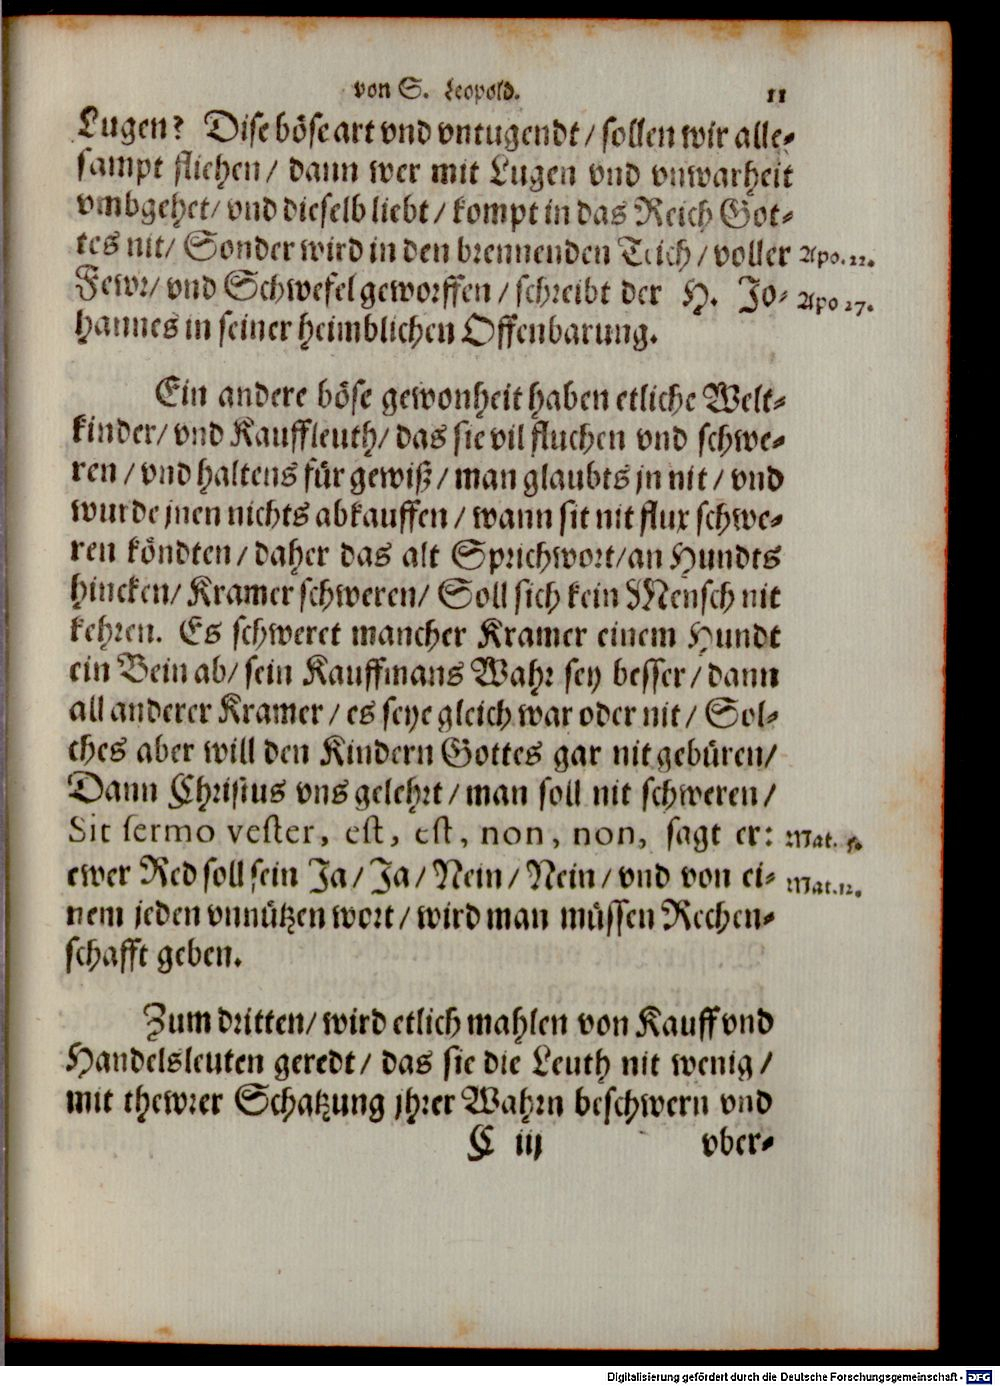 von S. Leopold. 11
Lugen? Dise böse art vnd vntugendt/ sollen wir alle-
sampt fliehen/ dann wer mit Lugen vnd vnwarheit
vmbgehet/ vnd dieselb liebt/ kompt in das Reich Got-
tes nit/ Sonder wird in den brennenden Teich/ voller Apo. 22.
Fewr/ vnd Schwefel geworffen/ schreibt der H. Jo- Apo 27.
hannes in seiner heimblichen Offenbarung.
Ein andere böse gewonheit haben etliche Welt-
kinder/ vnd Kauffleuth/ das sie vil fluchen vnd schwe-
ren/ vnd haltens für gewiß/ man glaubts jn nit/ vnd
wurde jnen nichts abkauffen/ wann sie nit flux schwe-
ren köndten/ daher das alt Sprichwort/ an Hundts
hincken/ Kramer schweren/ Soll sich kein Mensch nit
kehren. Es schweret mancher Kramer einem Hundt
ein Bein ab/ sein Kauffmans Wahr sey besser/ dann
all anderer Kramer/ es seye gleich war oder nit/ Sol-
ches aber will den Kindern Gottes gar nit gebüren/
Dann Christus vns gelehrt/ man soll nit schweren/
Sit sermo vester, est, est, non, non, sagt er: Mat. 5.
ewer Red soll sein Ja/ Ja/ Nein/ Nein/ vnd von ei- Mat. 12.
nem jeden vnnützen wort/ wird man müssen Rechen-
schafft geben.
Zum dritten/ wird etlich mahlen von Kauff vnd
Handelsleuten geredt/ das sie die Leuth nit wenig/
mit thewrer Schatzung jhrer Wahrn beschwern vnd
C iij vber-
Digitalisierung gefördert durch die Deutsche Forschungsgemeinschaft - DFG